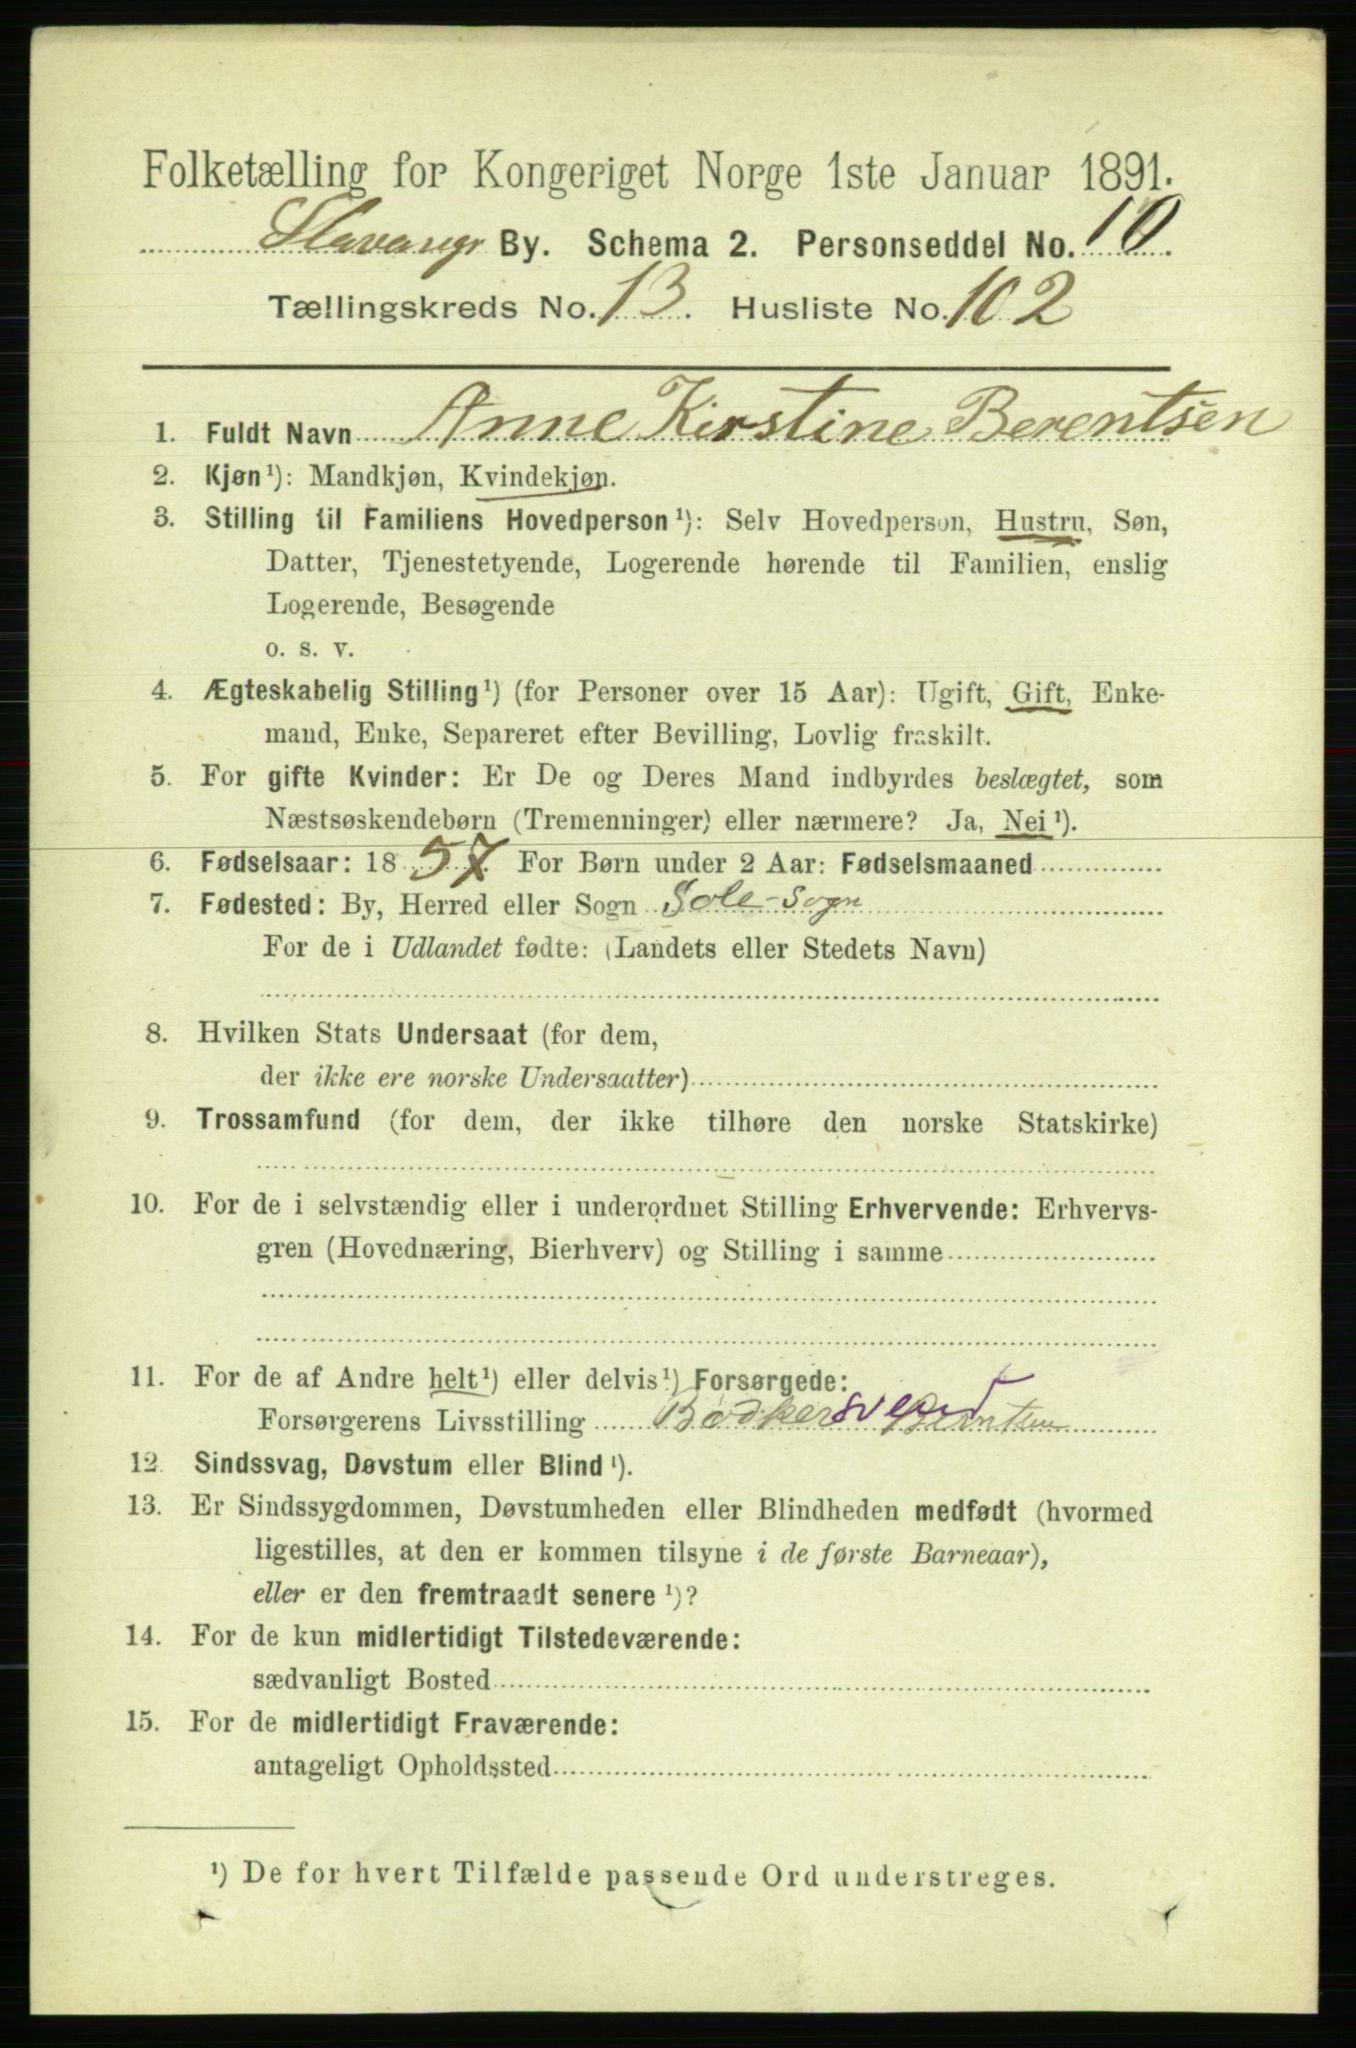 Folketælling for Kongeriget Norge 1ste Januar 1891.
Stavanger By. Schema 2. Personseddel No. 10.
Tællingskreds No. 13. Husliste No. 102
1. Fuldt Navn Anne Kirstine Berentsen
2. Kjøn¹): Mandkjøn, Kvindekjøn.
3. Stilling til Familiens Hovedperson¹): Selv Hovedperson, Hustru, Søn,
Datter, Tjenestetyende, Logerende hørende til Familien, enslig
Logerende, Besøgende
o. s. v.
4. Ægteskabelig Stilling¹) (for Personer over 15 Aar): Ugift, Gift, Enke-
mand, Enke, Separeret efter Bevilling, Lovlig fraskilt.
5. For gifte Kvinder: Er De og Deres Mand indbyrdes beslægtet, som
Næstsøskendebørn (Tremenninger) eller nærmere? Ja, Nei¹).
6. Fødselsaar: 1857. For Børn under 2 Aar: Fødselsmaaned
7. Fødested: By, Herred eller Sogn Sole-Sogn
For de i Udlandet fødte: (Landets eller Stedets Navn)
8. Hvilken Stats Undersaat (for dem,
der ikke ere norske Undersaatter)
9. Trossamfund (for dem, der ikke tilhøre den norske Statskirke)
10. For de i selvstændig eller i underordnet Stilling Erhvervende: Erhvervs-
gren (Hovednæring, Bierhverv) og Stilling i samme
11. For de af Andre helt¹) eller delvis¹) Forsørgede:
Forsørgerens Livsstilling Bødkersvend Berntsen
12. Sindssvag, Døvstum eller Blind¹).
13. Er Sindssygdommen, Døvstumheden eller Blindheden medfødt (hvormed
ligestilles, at den er kommen tilsyne i de første Barneaar),
eller er den fremtraadt senere¹)?
14. For de kun midlertidigt Tilstedeværende:
sædvanligt Bosted
15. For de midlertidigt Fraværende:
antageligt Opholdssted
¹) De for hvert Tilfælde passende Ord understreges.